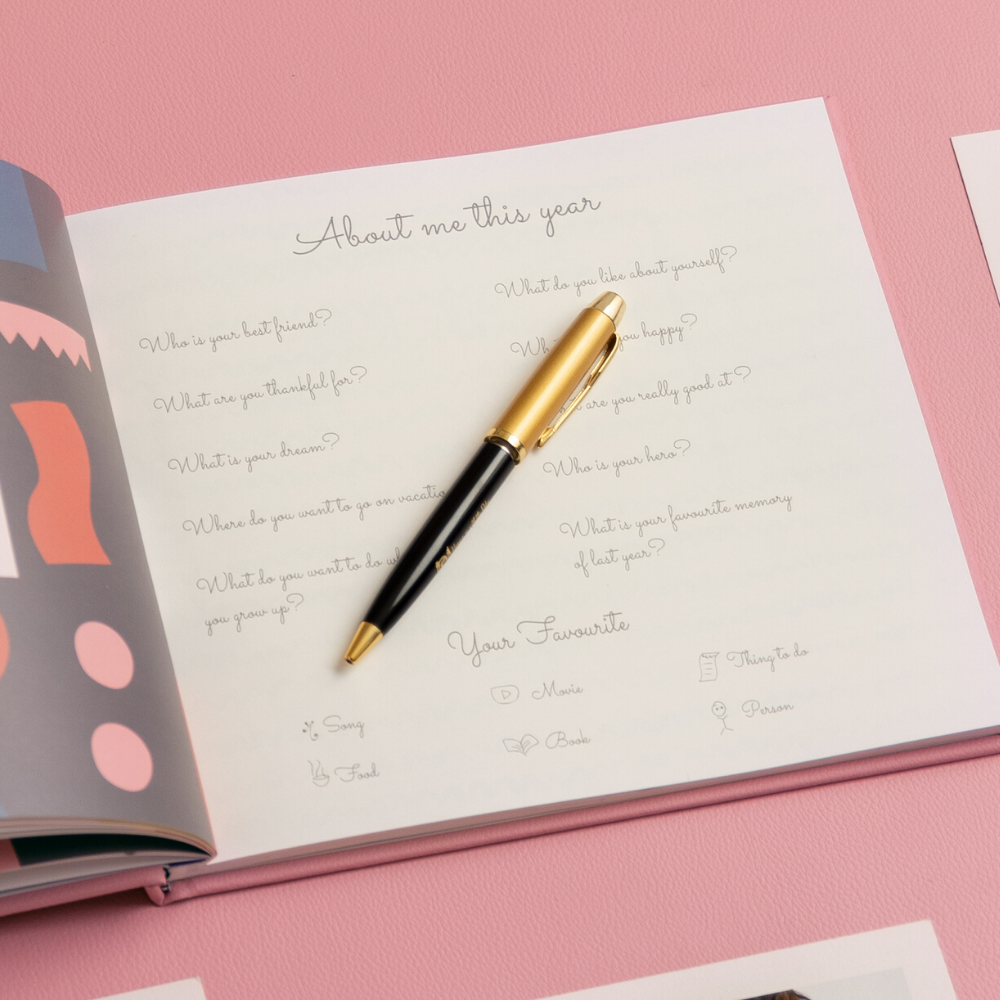 About me this year
Who is your best friend?
What are you thankful for?
What is your dream?
Where do you want to go on vacatio
What do you want to do w
you grow up?
What do you like about yourself?
you happy?
are you really good at?
Who is your hero?
What is your favourite memory
of last year?
Your Favourite
Song
Food
Movie
Book
Thing to do
Person